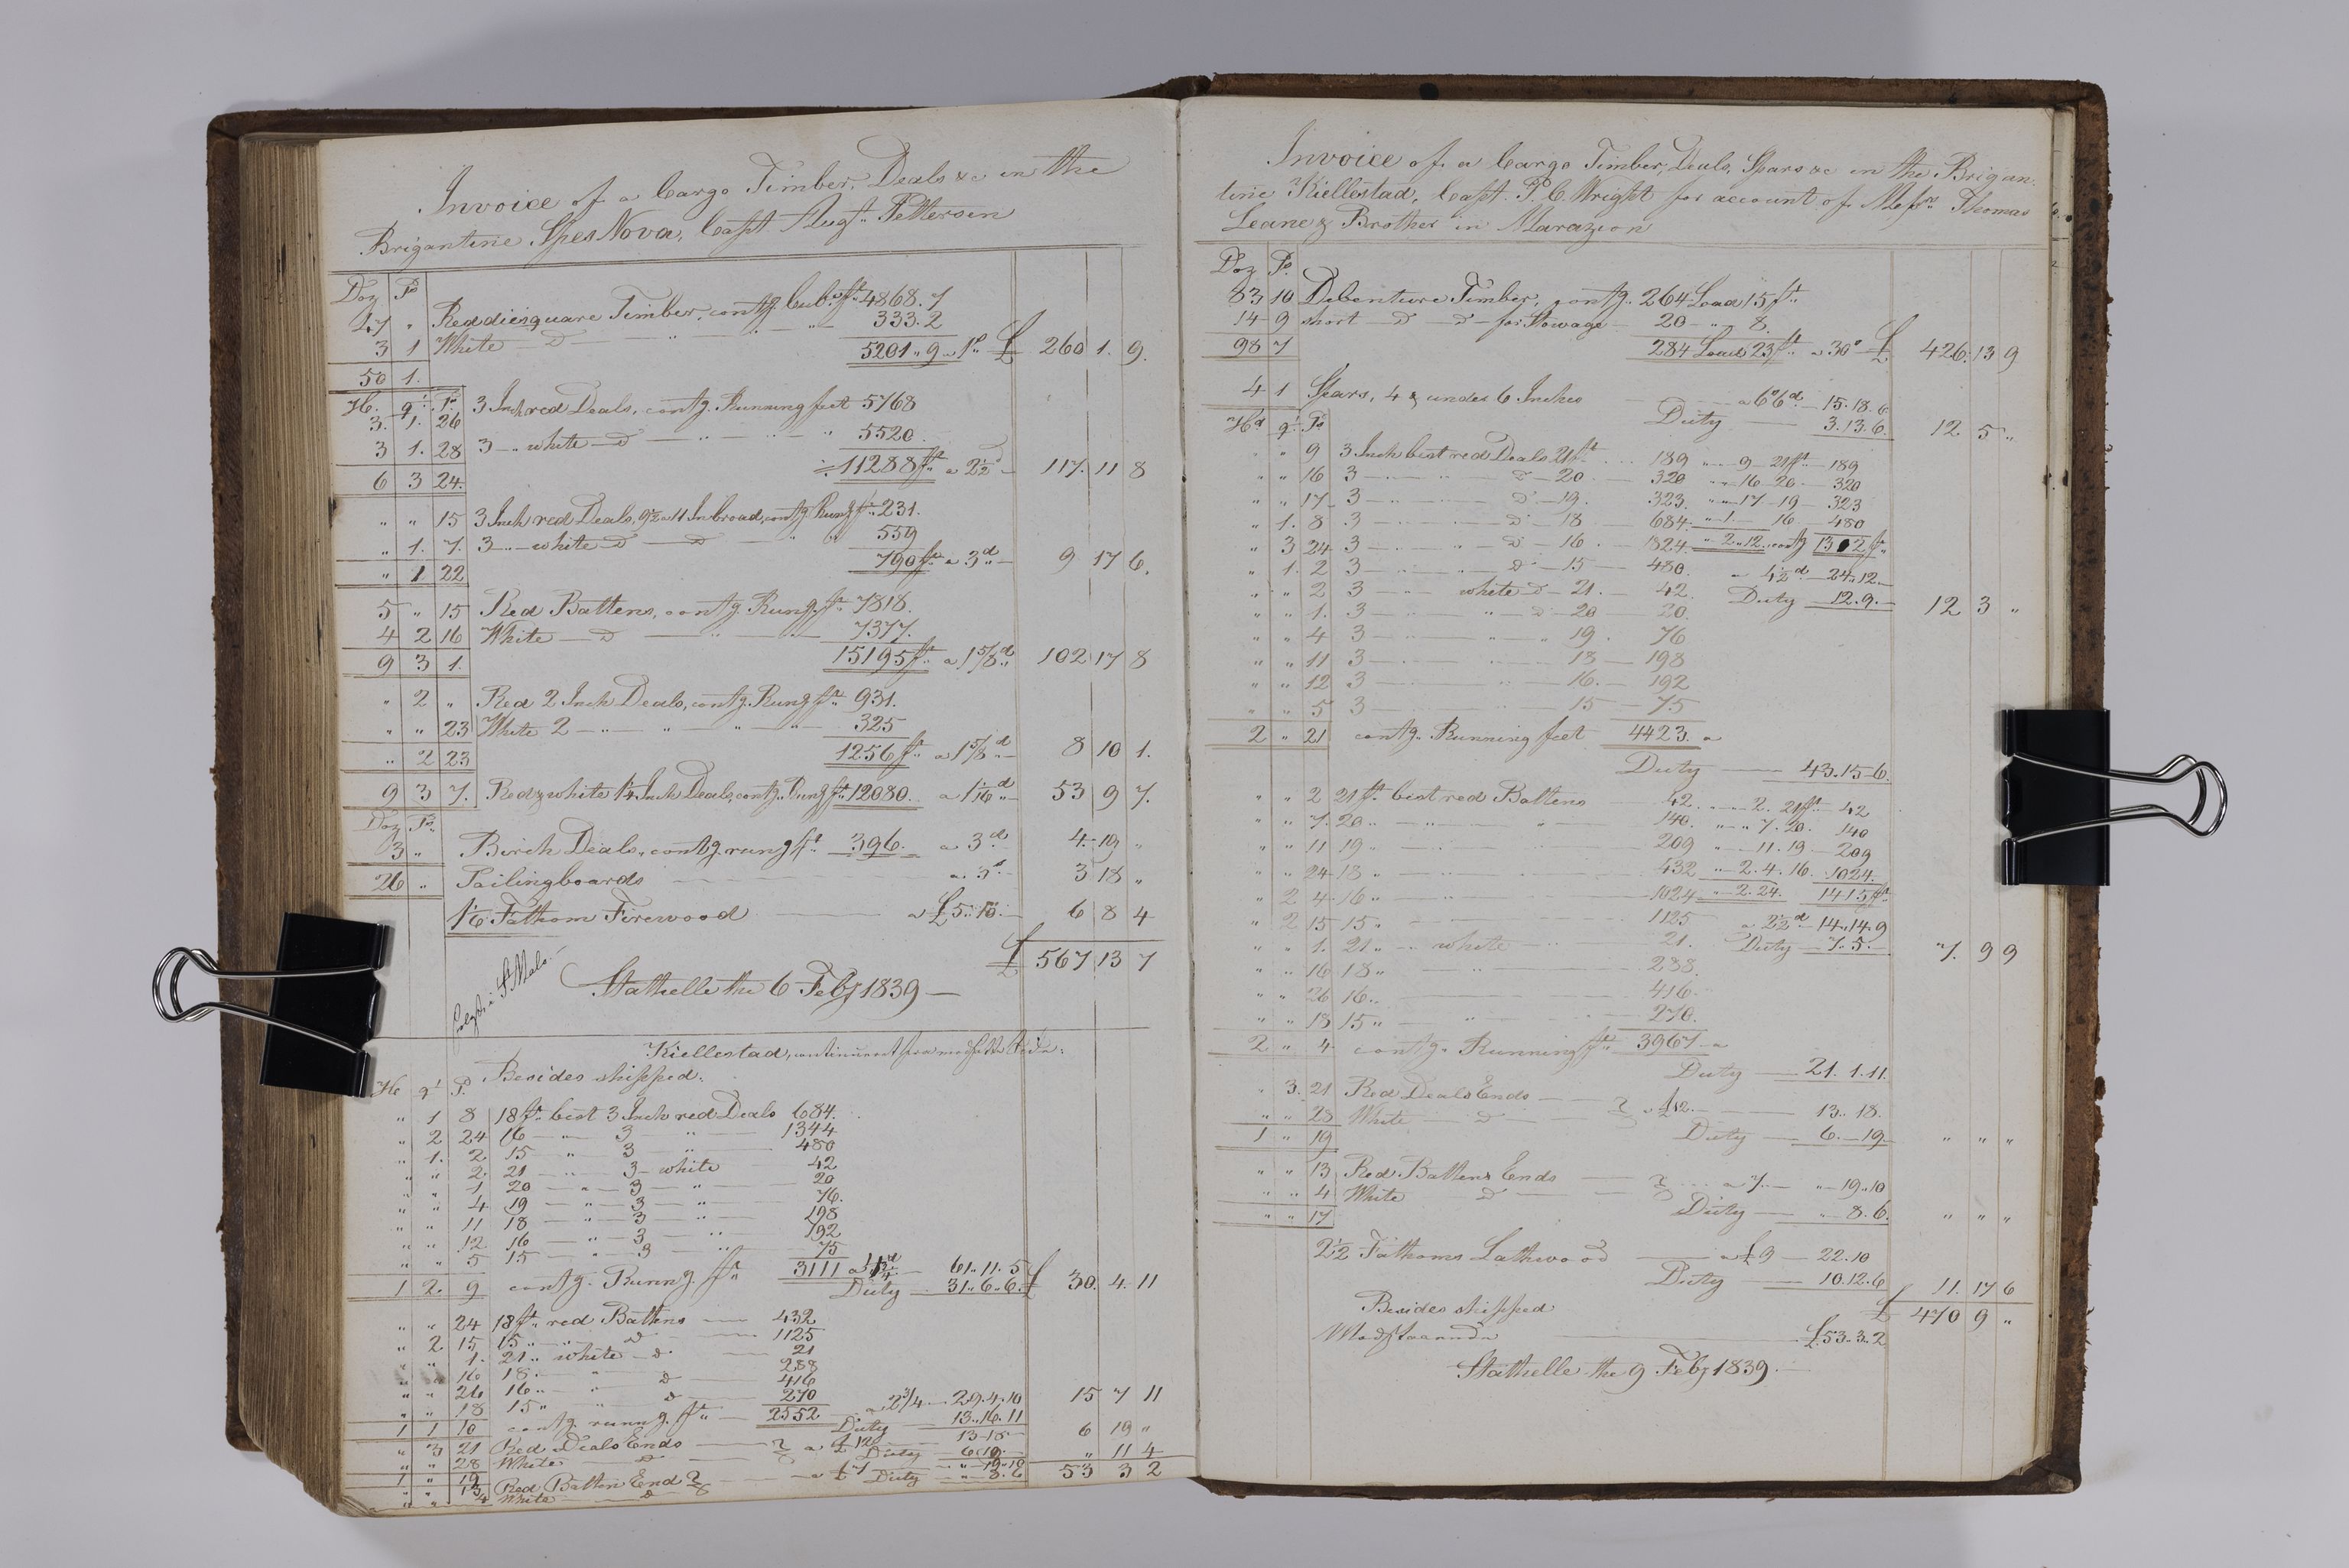 Invoice of a Cargo Timber, Deals &c in the
Brigantine Spes Nova, Capt Aug: Pettersen
Doz Ps
47 " Red die square Timber, contg. Cub. ft 4868.7
3 1 White D 333.2
5201 " 9 a 1s £ 260 1. 9.
50 1.
H. qr. Ps.
3. 1. 26 3 Inch red Deals, contg. Running feet 5768
3 1. 28 3 " white D 5520
6 3 24. 11288 ft a 2½d 117. 11 8
" " 15 3 Inch red Deals, 9½ a 11 In broad, contg. Rung ft 231.
" 1. 7. 3 " white D D 559
" 1 22 790 ft a 3d 9 17 6.
5 " 15 Red Battens, contg. Rung. ft 7818.
4 2 16 White D 7377.
9 3 1. 15195 ft a 1⅝d 102 17 8
" 2 " Red 2 Inch Deals, contg. Rung ft 931.
" " 23 White 2 325
" 2 23 1256 ft a 1⅝d 8 10 1.
9 3 7. Red & white 1¼ Inch Deals, contg. Rung ft 12080. a 1 1/16d 53 9 7.
Doz Ps.
3 " Birch Deals, contg. rung ft 396. a 3d 4 19 "
26 " Pailingboards a 3s 3 18 "
1⅙ Fathom Firewood a £5. 10. 6 8 4
£ 567 13 7
St Malo.
Stathelle the 6 Feby 1839
Kiellestad, continueret fra
Besides shipped.
Hd qr P.
" 1 8 18 ft best 3 Inch red Deals 684.
" 2 24 16 " 3 " 1344
" 1. 2 15 " 3 " 480
" " 2. 21 " 3 white 42
" " 1 20 " 3 " 20
" " 4 19 " 3 " 76.
" " 11 18 " 3 " 198
" " 12 16 " 3 " 192
" " 5 15 " 3 " 75
1 2. 9 contg. Runng. ft 3111 a 61. 11. 5
Duty 31. 6. 6. £ 30. 4. 11
" " 24 18 ft red Battens 432
" 2 15 15 " D 1125
" " 1. 21 " white D 21
" " 16 18 " 288
" " 26 16 " D 416
" " 18 15 " D 270
1 1 10 contg. runng. ft 2552 a 2¾ 29. 4. 10
Duty 13. 16. 11 15 7 11
" 3 21 Red Deals Ends a £12 13 18
" " 28 White D Duty 6. 19. 6 19 "
1 " 19
" " 13 Red Batten End a £7 " 19. 10
" " 4 White D Duty " 8. 6 " 11 4
53 3 2
Invoice of a Cargo Timber, Deals, Spars &c in the Brigan-
tine Kiellestad, Capt. P. C. Wright for account of Messrs Thomas
Leane & Brother in Marazion
Doz Ps.
83 10 Debenture Timber, contg. 264 Load 15 ft
14 9 short D D for Stowage 20 " 8.
98 7 284 Load 23 ft a 30s £ 426. 13 9
4 1 Spars, 4 & under 6 Inches a 6s6d 15. 18. 6
Duty 3. 13. 6. 12 5 "
Hd qr Ps
" " 9 3 Inch best red Deals 21 ft 189 " " 9 21 ft 189
" " 16 3 " D 20 320 " " 16 20 320
" " 17 3 D 19. 323. " " 17 19 323
" 1. 8 3 D 18 684. " 1. 16 480
" 3 24 3 " D 16 1824. " 2 " 12 contg 1312 ft
" 1. 2 3 " D 15 480. a 4½d 24. 12.
" " 2 3 white D 21. 42. Duty 12. 9. 12 3 "
" " 1. 3 " D 20 20.
" " 4 3 " " 19. 76
" " 11 3 18 198
" " 12 3 " 16. 192
" " 5 3 15 75
2 " 21 contg. Running feet 4423. a
Duty 43. 15. 6.
" " 2 21 ft best red Battens 42. " " 2. 21 ft 42
" " 7. 20 " " 140. " " 7. 20. 140
" " 11 19 " 209 " 11. 19 209
" " 24 18 " 432 " 2. 4. 16. 1024.
" 2 4 16 " 1024 " 2. 24. 1415 ft
" 2 15 15 " 1125 a 2½d 14. 14. 9
" " 1. 21 " white 21. Duty 7. 5. 7. 9 9
" " 16 18 " " 288.
" " 26 16 " 416.
" " 18 15 " " 270.
2 " 4 contg. Running ft 3967 a
Duty 21. 1. 11.
" 3. 21 Red Deals Ends
" " 28 White D a £12. 13. 18.
1 " 19 Duty 6. 19. " " "
" " 13 Red Battens Ends
" " 4 White D a 7. " 19. 10
" " 17 Duty " 8. 6. " " "
2½ Fathoms Lathwood a £9 22. 10
Duty 10. 12. 6 11. 17 6
Besides shipped £ 470 9 "
£53. 3. 2
Stathelle the 9 Feby 1839.